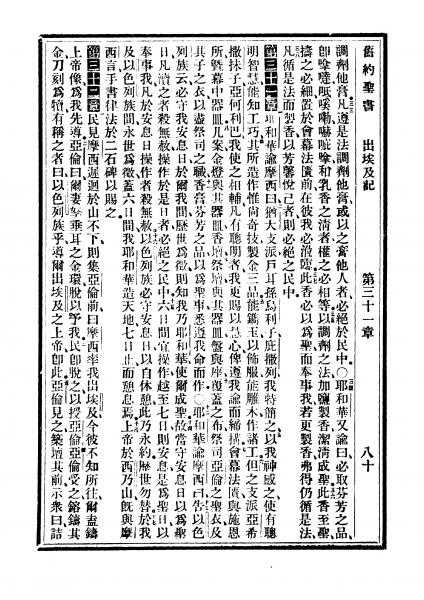 舊約聖書 出埃及記 第三十一章 八十
調劑他膏凡遵是法調劑他膏或以之膏他人者必絕於民中○耶和華又諭曰必取芬芳之品
卽拿和乳香之清者權之必相等以調劑之法加鹽製香潔清成聖此香至聖
擣之必細置於會幕法匱前在彼我必涖臨此香必以爲聖而奉事我若更製香弗得仍循是法
凡循是法而製香以芳馨悅己者則必絕之民中
第三十一章耶和華諭摩西曰猶大支派戶珥孫烏利子庇撒列我特簡之以我神感之使有聰
明智慧能知工巧其所造作惟尚奇技製金三品能鐫玉以飾服能雕木作諸工但之支派亞希
撒抹子亞何利巴我使之相輔凡有聰明者我更賜以慧心俾遵我諭而締搆會幕法匱與施恩
所曁幕中器皿几案金燈與其器皿香壇祭壇與其器皿盤與座覆蓋之布祭司亞倫之聖衣及
其子之衣以盡祭司之職香膏芬芳之品以爲聖事悉遵我命而作○耶和華諭摩西曰告以色
列族云必守我安息日於爾我間歷世爲徵則知我乃耶和華使爾成聖故當守安息日以爲聖
日凡瀆之者殺無赦操作於是日者必絕之民中六日間宜操作越至七日則安息是爲聖日以
奉事我凡於安息日操作者殺無赦以色列族必守安息日以自休憩此乃永約歷世勿替於我
及以色列族間永世爲徵蓋六日間我耶和華造天地七日止而憩息焉上帝於西乃山旣與摩
西言手書律法於二石碑以賜之
第三十二章民見摩西遲迴於山不下則集亞倫前曰摩西率我出埃及今彼不知所往爾盍鑄
上帝像爲我先導亞倫曰爾妻孥垂耳之金環脫以予我民卽脫之以授亞倫亞倫受之鎔鑄其
金刀刻爲犢有稱之者曰以色列族乎導爾出埃及之上帝卽此亞倫見之築壇其前示衆曰詰